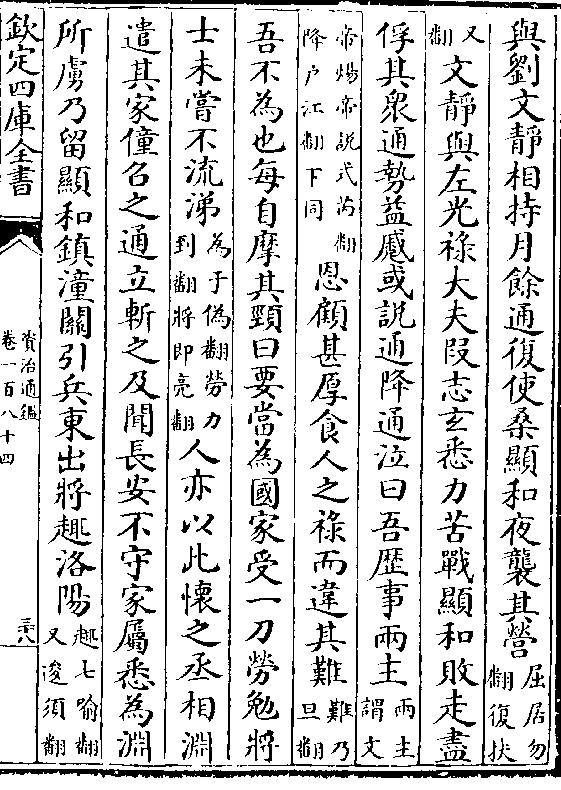 與劉文靜相持月餘通復使桑顯和夜襲其營屈居勿翻復扶
又翻文靜與左光祿大夫段志玄悉力苦戰顯和敗走盡
俘其衆通勢益蹙或說通降通泣曰吾歷事兩主兩主謂文
帝煬帝說式芮翻降戸江翻下同恩顧甚厚食人之祿而違其難難乃旦翻
吾不為也每自摩其頸曰要當為國家受一刀勞勉將
士未嘗不流涕為于偽翻勞力到翻將即亮翻人亦以此懷之丞相淵
遣其家僮召之通立斬之及聞長安不守家屬悉為淵
所虜乃留顯和鎮潼關引兵東出將趣洛陽趣七喻翻又逡須翻
欽定四庫全書
資治通鑑
卷一百八十四
三十八